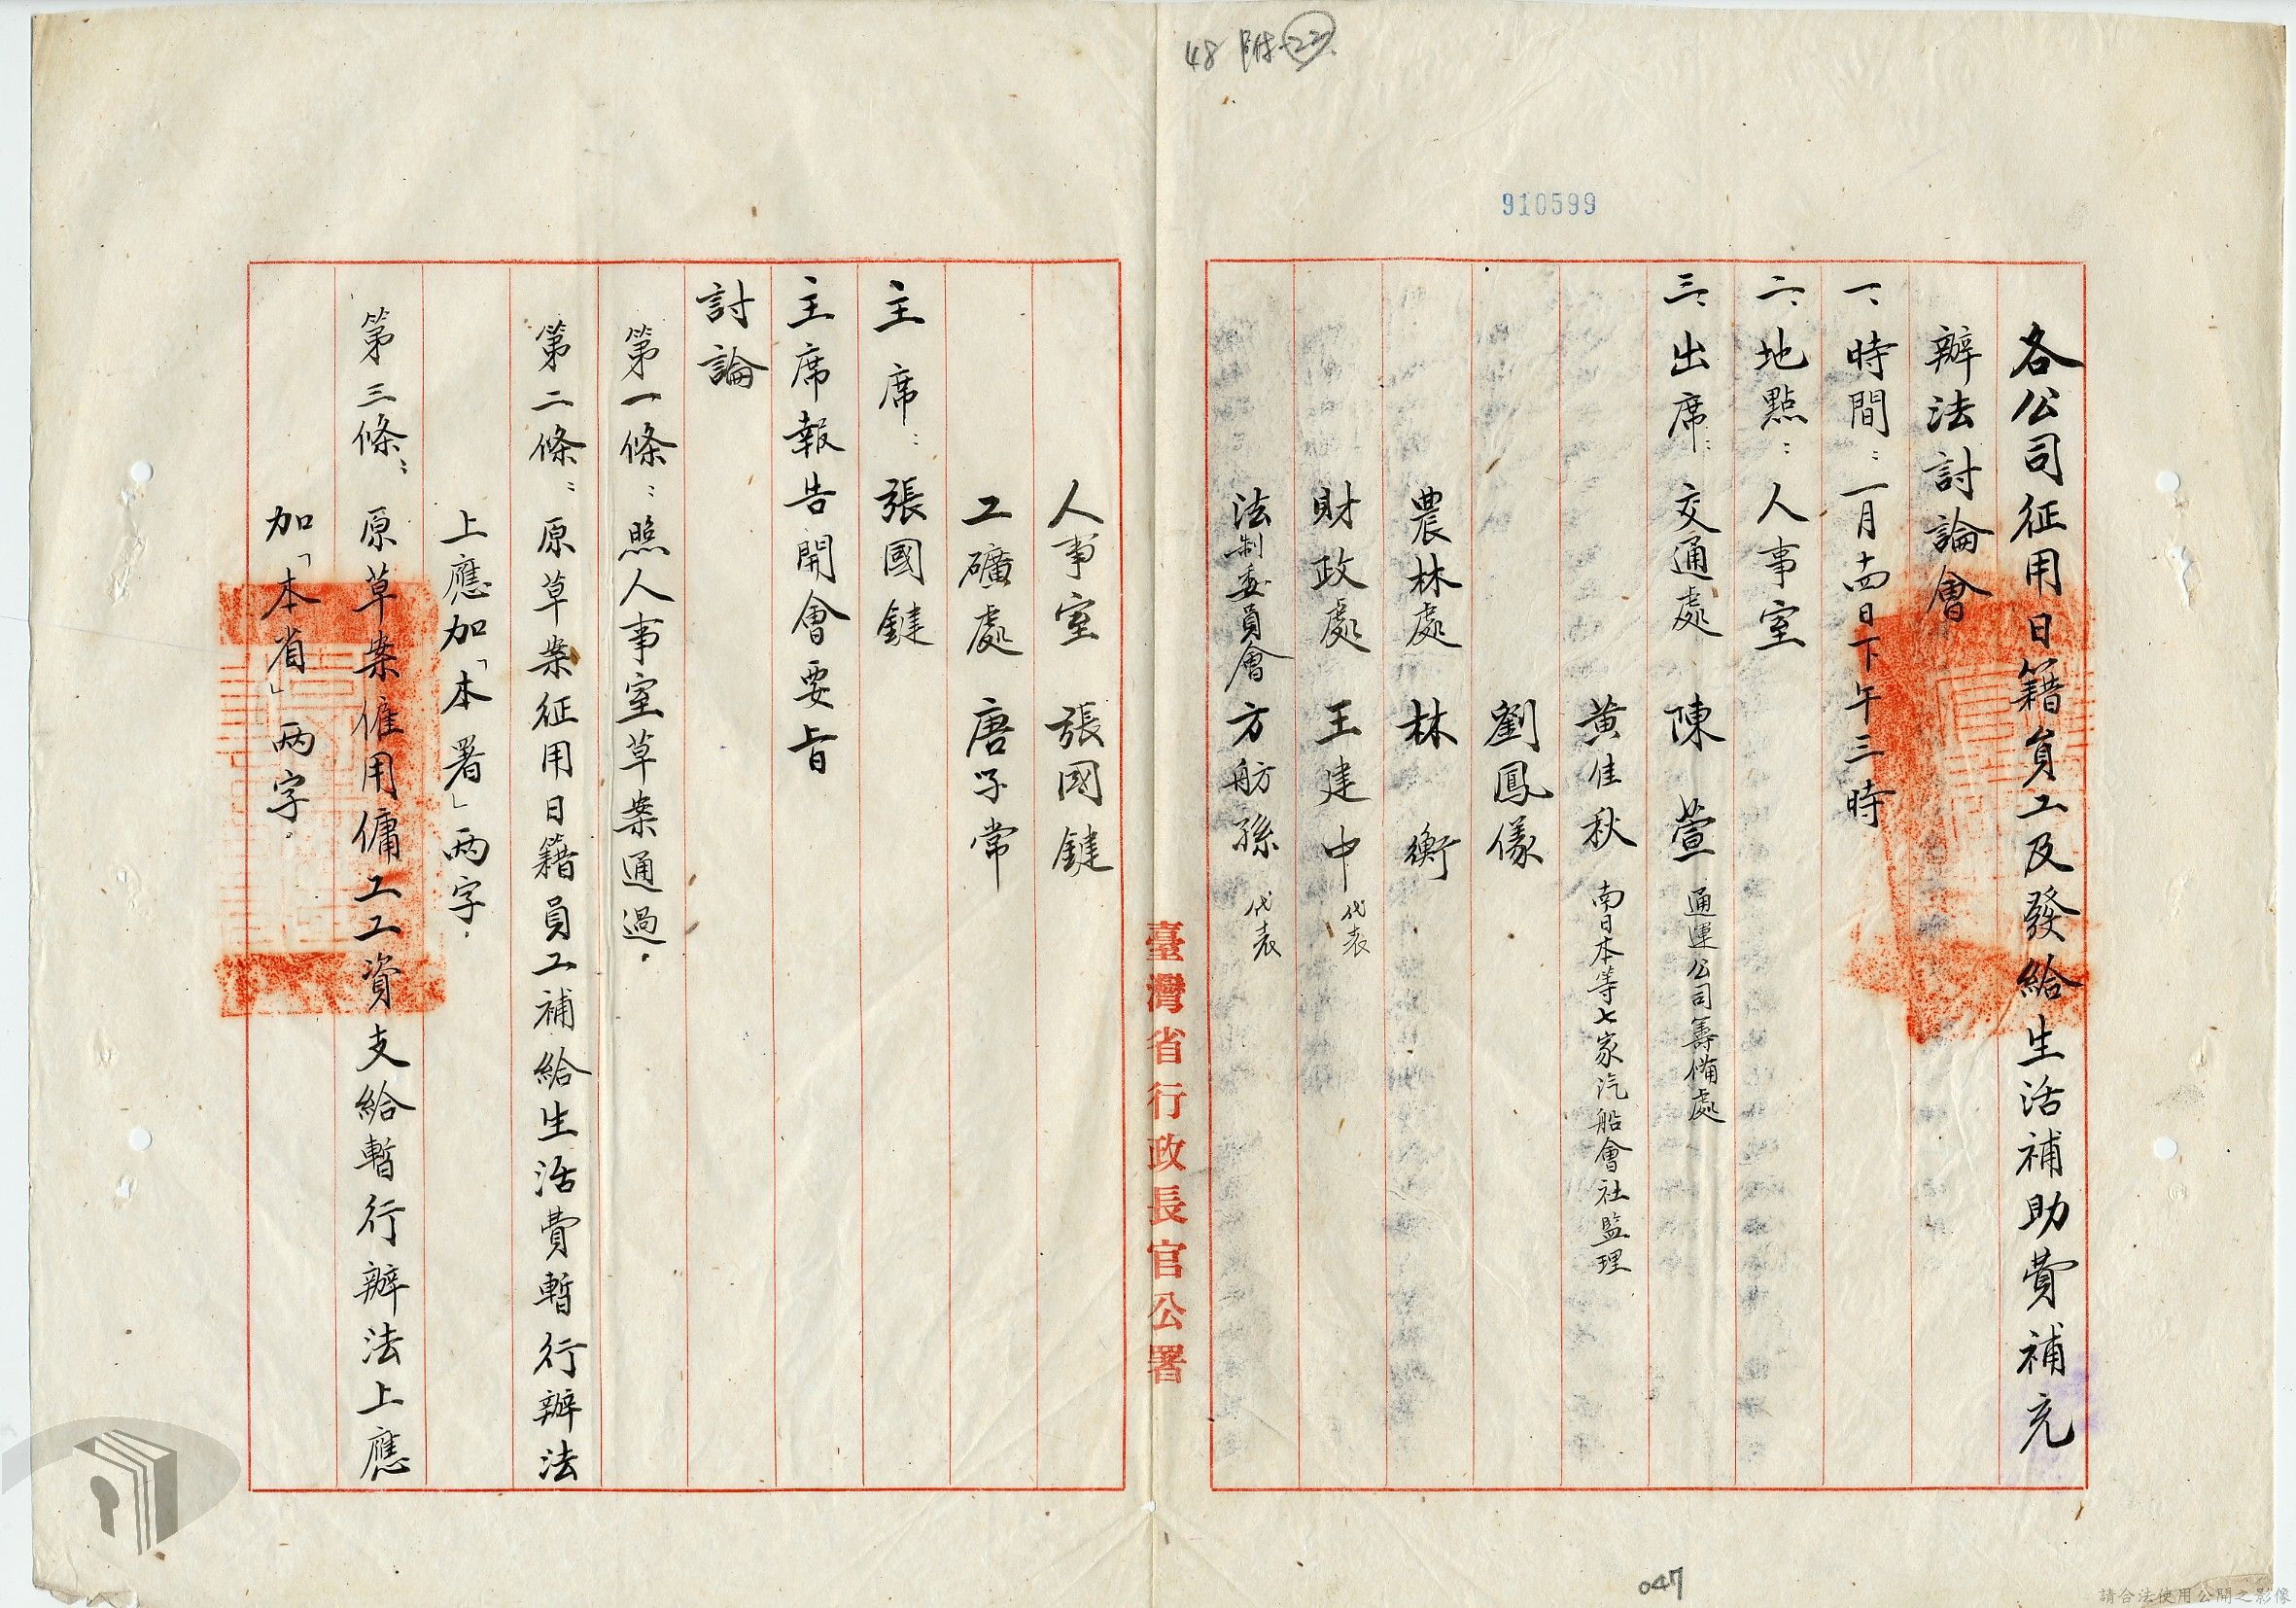 48 附(22)
910599
各公司征用日籍員工及發給生活補助費補充
辦法討論會
一、時間：一月十四日下午三時
二、地點：人事室
三、出席：交通處 陳萱 通運公司籌備處
黄佳秋 南日本等七家汽船會社監理
劉鳳儀
農林處 林衡
財政處 王建中 代表
法制委員會 方舫孫 代表
臺灣省行政長官公署
人事室 張國鍵
工礦處 唐子常
主席：張國鍵
主席報告開會要旨
討論
第一條：照人事室草案通過．
第二條：原草案征用日籍員工補給生活費暫行辦法
上應加「本署」两字．
第三條：原草案僱用傭工工資支給暫行辦法上應
加「本省」两字．
047
請合法使用公開之影像